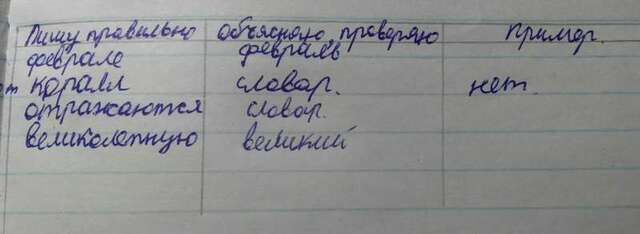 Пишу правильно Объясняю, проверяю Пример.
феврале февраль
коралл словар. нет.
отражаются словар.
великолепную великий